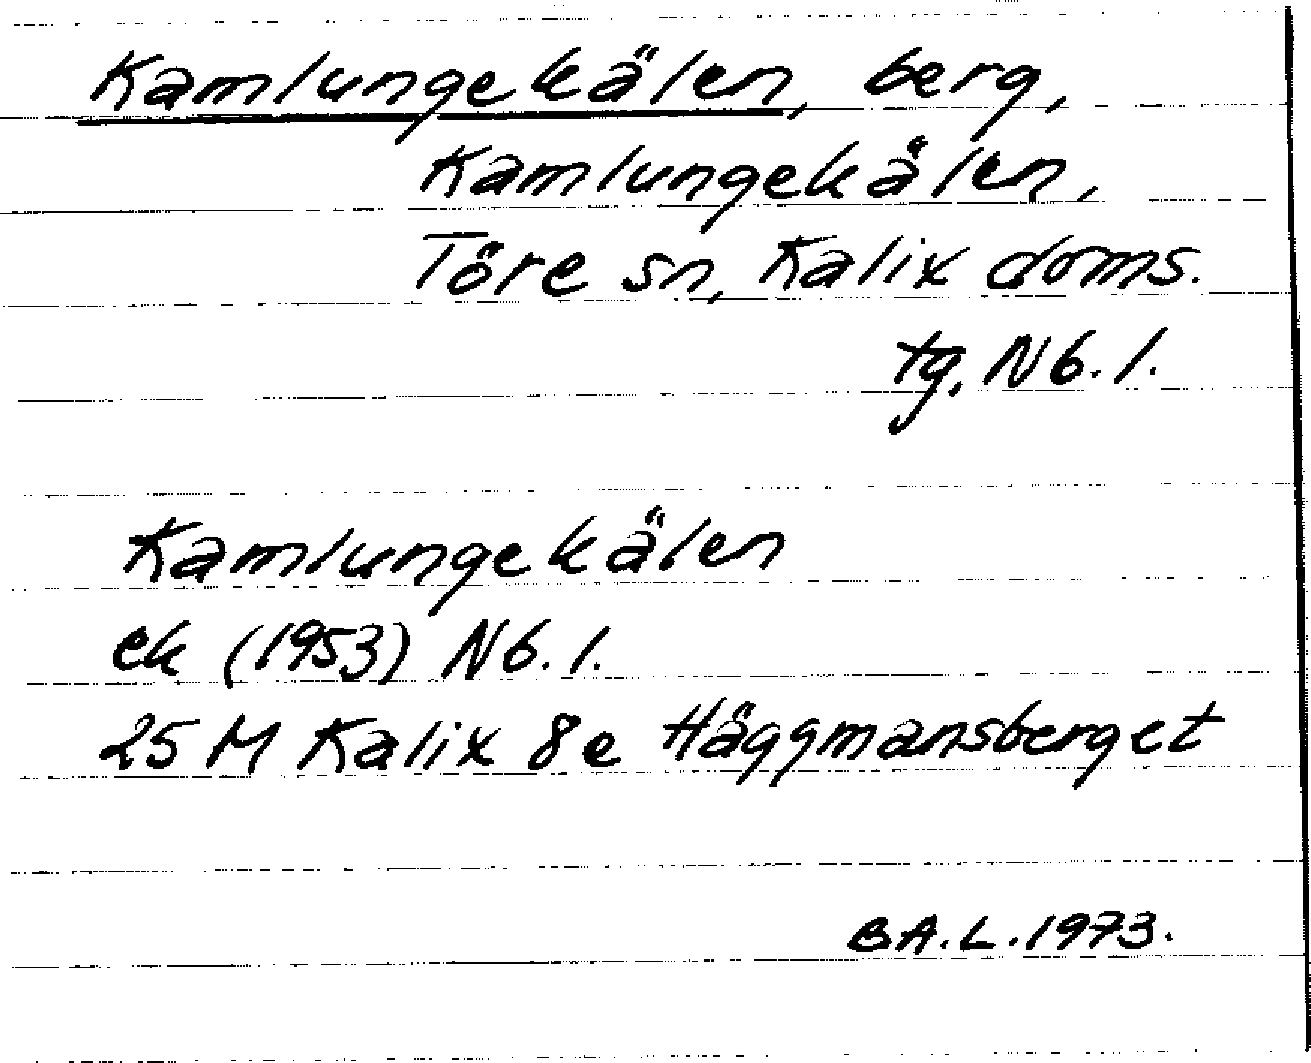 Kamlungekälen, berg,
Kamlungekälen,
Töre sn, Kalix doms.
tg, Nb. l.
Kamlungekälen
ek (1953) Nb. l.
25 M Kalix 8e Häggmansberget
B A. L. 1973.